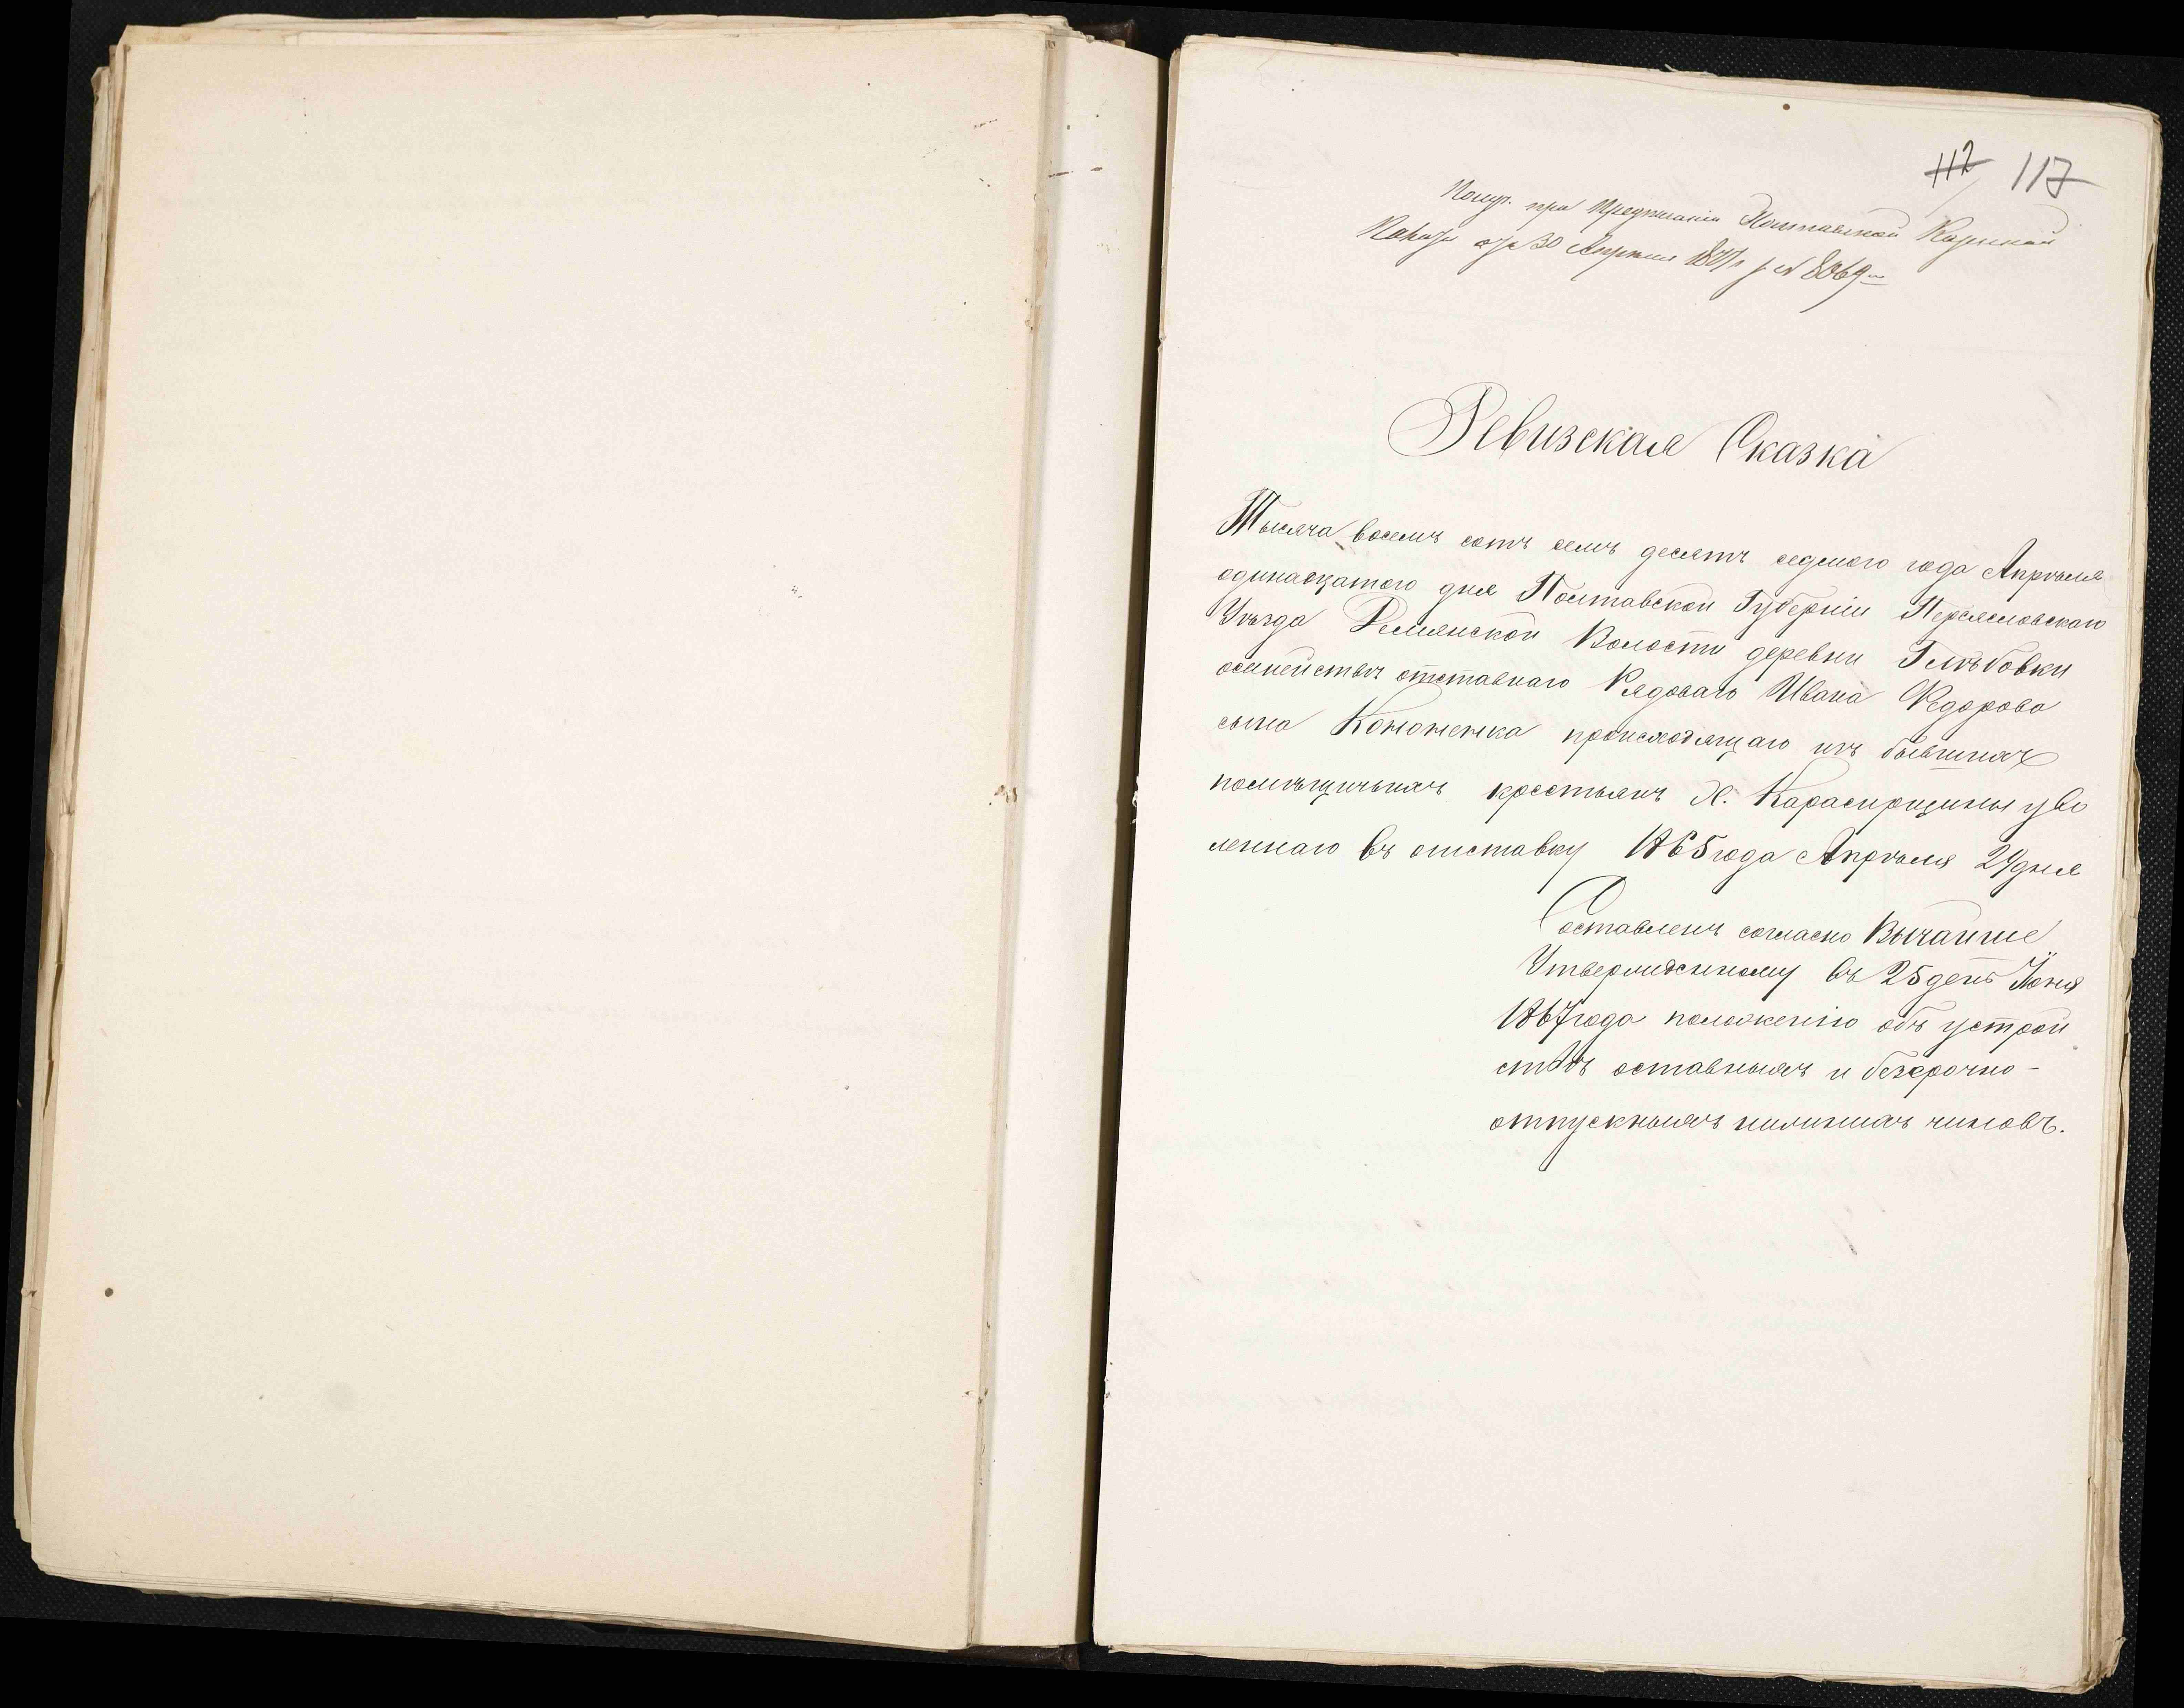 112 117
Получ. при Предписании Полтавской Казенной
Палаты отъ 30 Апреля 1877 г за № 8069
Ревизская Сказка
Тысяча восемъ сотъ семъ десятъ седмого года Апрѣля
одинадцатого дня Полтавской Губерніи Переяславскаго
Уѣзда Демянской Волости деревни Глѣбовки
осемействѣ отставнаго Рядоваго Ивана Федорова
сына Кононенка происходящаго изъ бывшихъ
помѣщичьихъ крестьянъ х. Карасирщины уво
леннаго въ отставку 1865 года Апрѣля 29 дня
Составленъ согласно Высочайше
Утвержденному въ 25 день Іюня
1867 года положенію объ устрой
ствѣ оставныхъ и безсрочно-
отпускныхъ нижнихъ чиновъ.